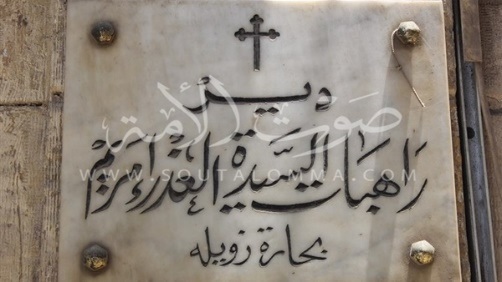 دير
صوت الأمة
راهبات السيدة العذراء مريم
WWW.SOUTALOMMA.COM
بحارة زويله